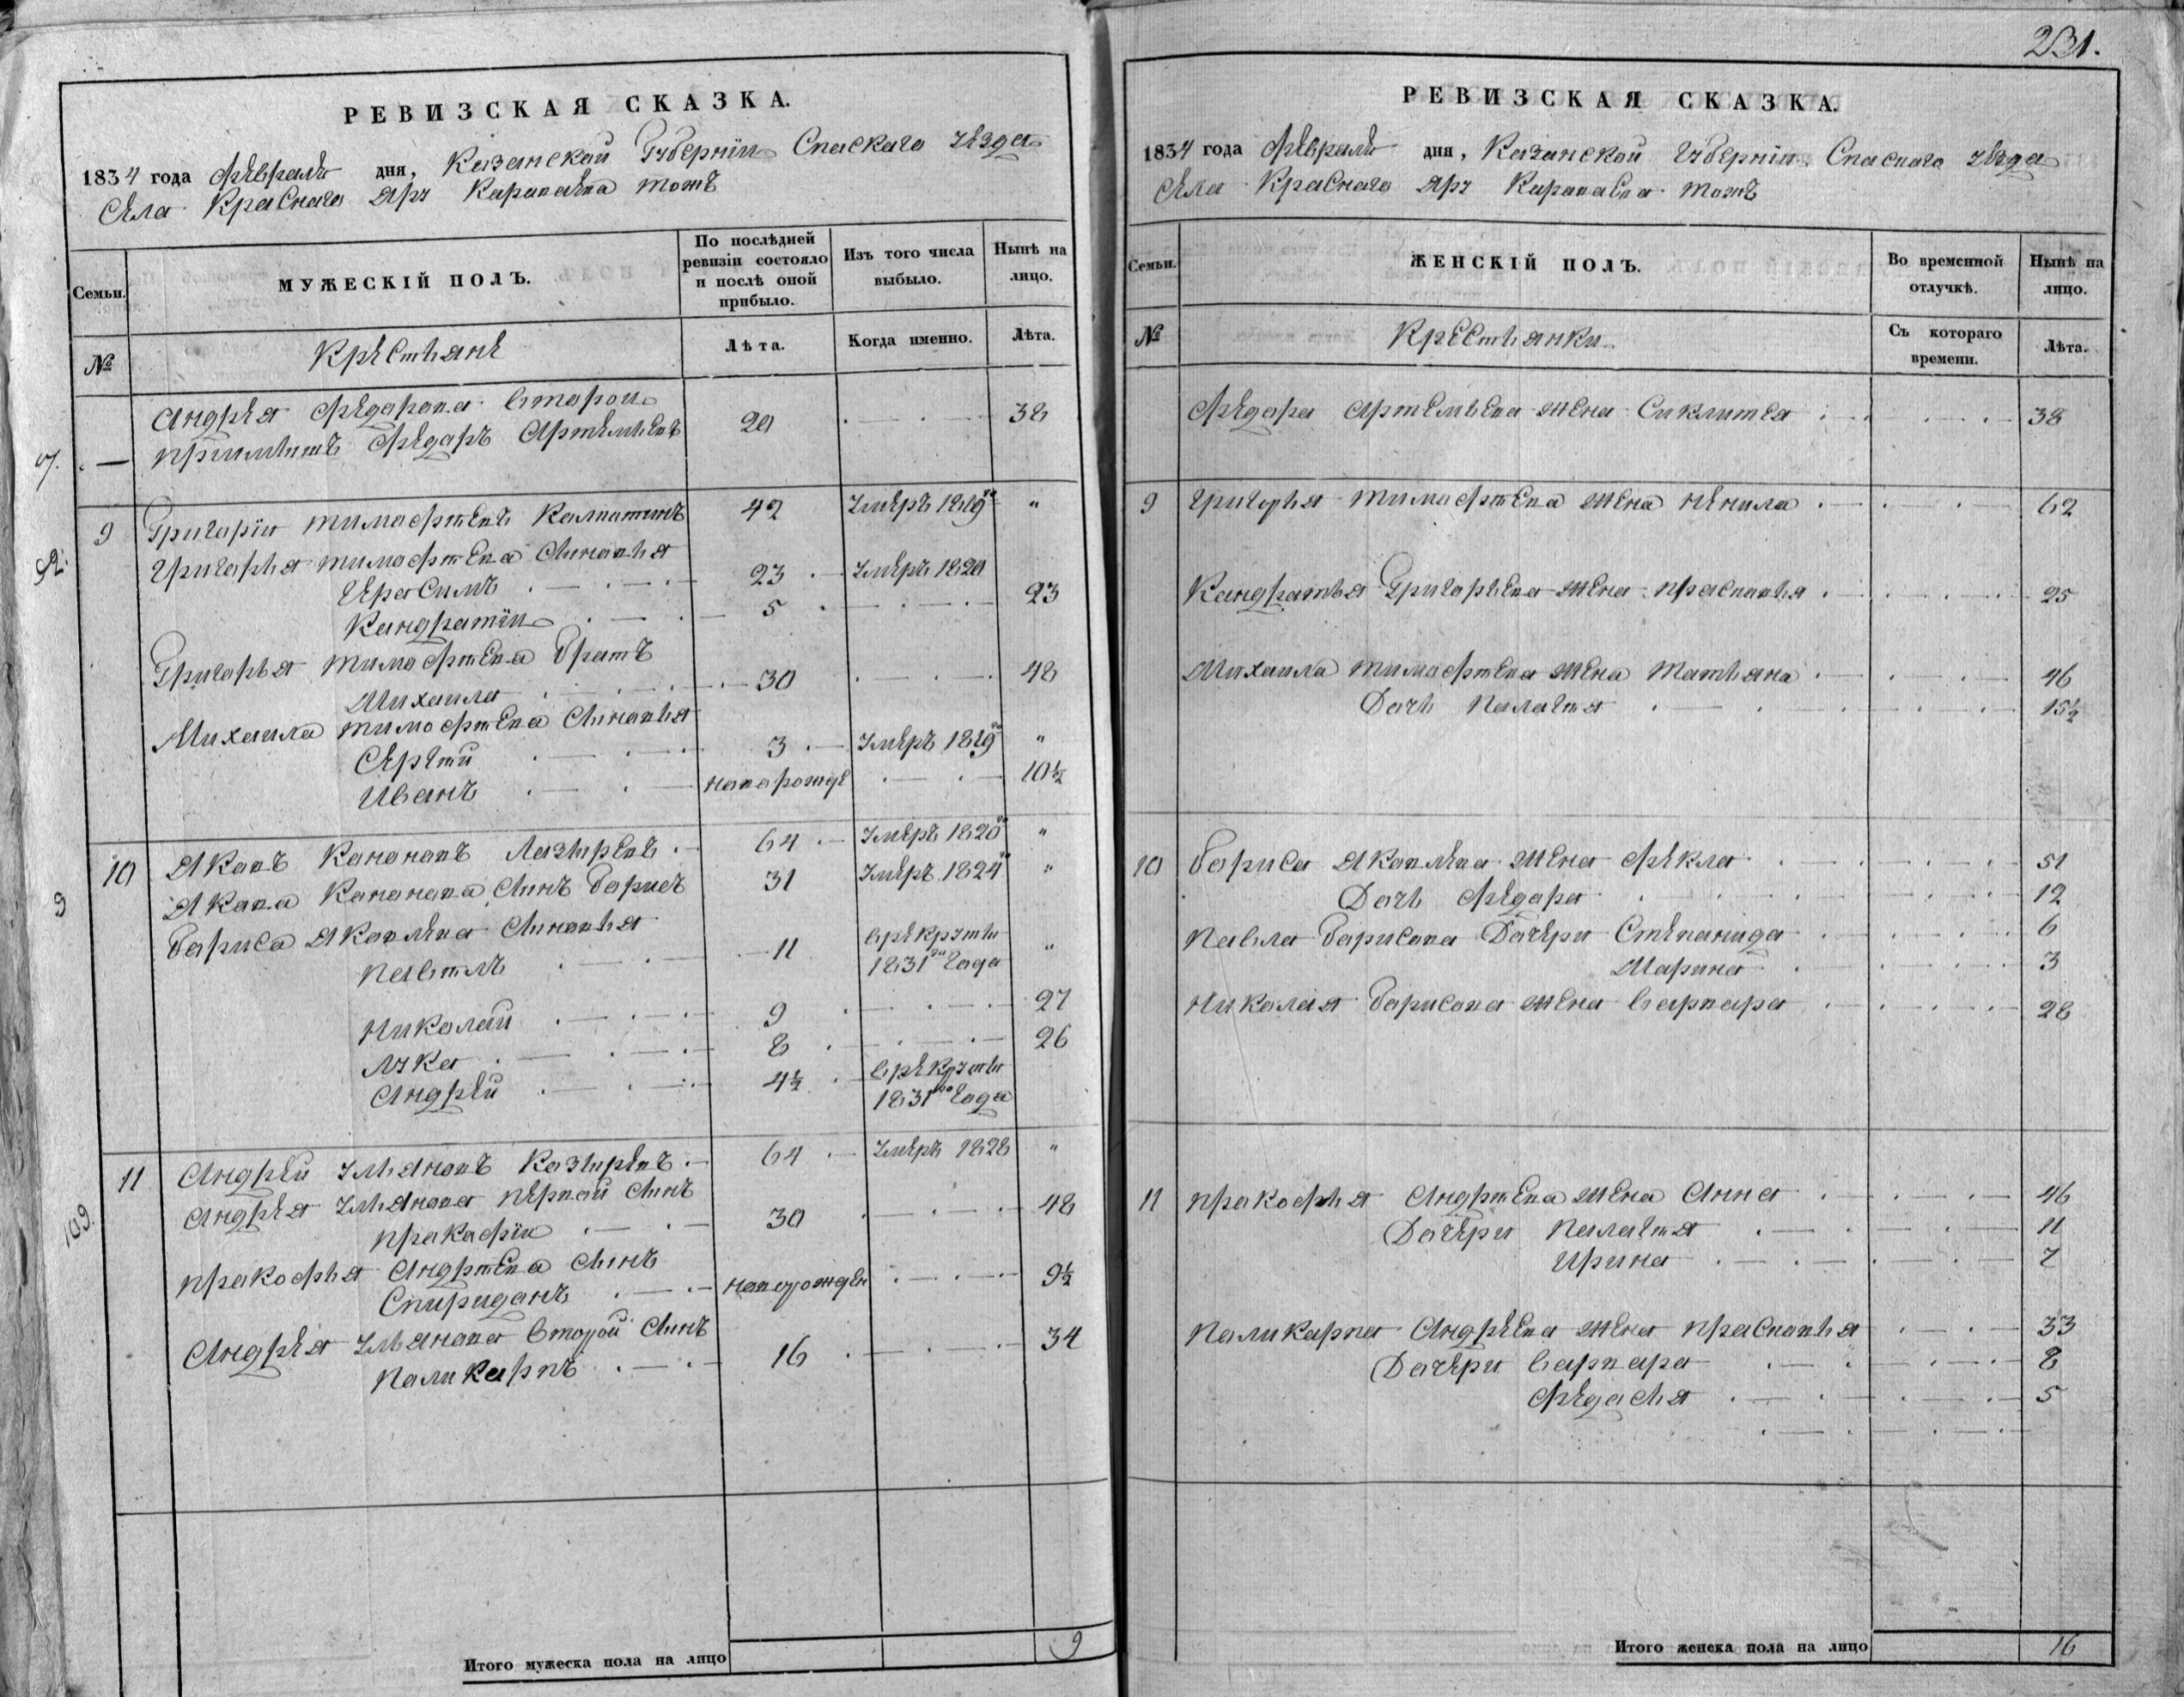 231.
РЕВИЗСКАЯ СКАЗКА.
1834 года февраля дня, Казанской Губернiи Спаскаго уезда
Села Краснаго Яру Карапаева тожъ
Семьи. МУЖЕСКІЙ ПОЛЪ. По послѣдней ревизіи состояло и послѣ оной прибыло. Изъ того числа выбыло. Нынѣ на лицо.
№ Крестьяне Лѣта. Когда именно. Лѣта.
Андрея Федарава втарои
7. приимытъ Федаръ Артемьевъ 20 38
9 Григарiи тимафтевъ 42 Умеръ 1819го "
92. Григарья тимафтева Сынавья
Ерасимъ 23 Умеръ 1820
Кандратiи 5 23
Григарья тимафтева братъ
Михаила 30 48
Михаила тимофтева Сынавья
Сергти 3 Умеръ 1819го "
Иванъ наварожде 10½
9 10 Якавъ Канановъ Лазыревъ 64 Умеръ 1820го "
Якава Кананава Сынъ Барисъ 31 Умеръ 1824го "
Бариса Яковлева Сынавья
Павтлъ 11 врекруты 1831го Года "
Николаи 9 27
Лука 8 26
Андреи 4½ врекруты 1831го Года
109. 11 Андреи Умьяновъ Казыревъ 64 Умеръ 1828 "
Андрея Умьянова первай Сынъ
пракафiи 30 48
пракофья Андртева Сынъ
Спириданъ наварожден 9½
Андрея Умьянова Второй Сынъ
Паликарпъ 16 34
Итого мужеска пола на лицо 9
РЕВИЗСКАЯ СКАЗКА.
1834 года февраля дня, Казанской Губернiи Спаскаго уезда
Села Краснаго Яру Карапаева тожъ
Семьи. ЖЕНСКІЙ ПОЛЪ. Во временной отлучкѣ. Нынѣ на лицо.
№ Крестьянки Съ котораго времени. Лѣта.
Федара Артемьева жена Сиклитея 38
9 Григорья тимафтева жена ненила 62
Кандратья Григорьева жена праскавья 25
Михаила тимафтева жена татьяна 46
Дачь Палагтя 15½
10 Бариса Яковлева жена Фекла 51
Дачь Федара 12
Павла Барисава Дачери Степанида 6
Марина 3
Николая Барисова жена Варвара 28
11 пракофья Андртева жена Анна 46
Дачери Палагтя 11
Ирина 7
Паликарпа Андрева жена праскавья 33
Дачери Варвара 8
Федасья 5
Итого женска пола на лицо 16